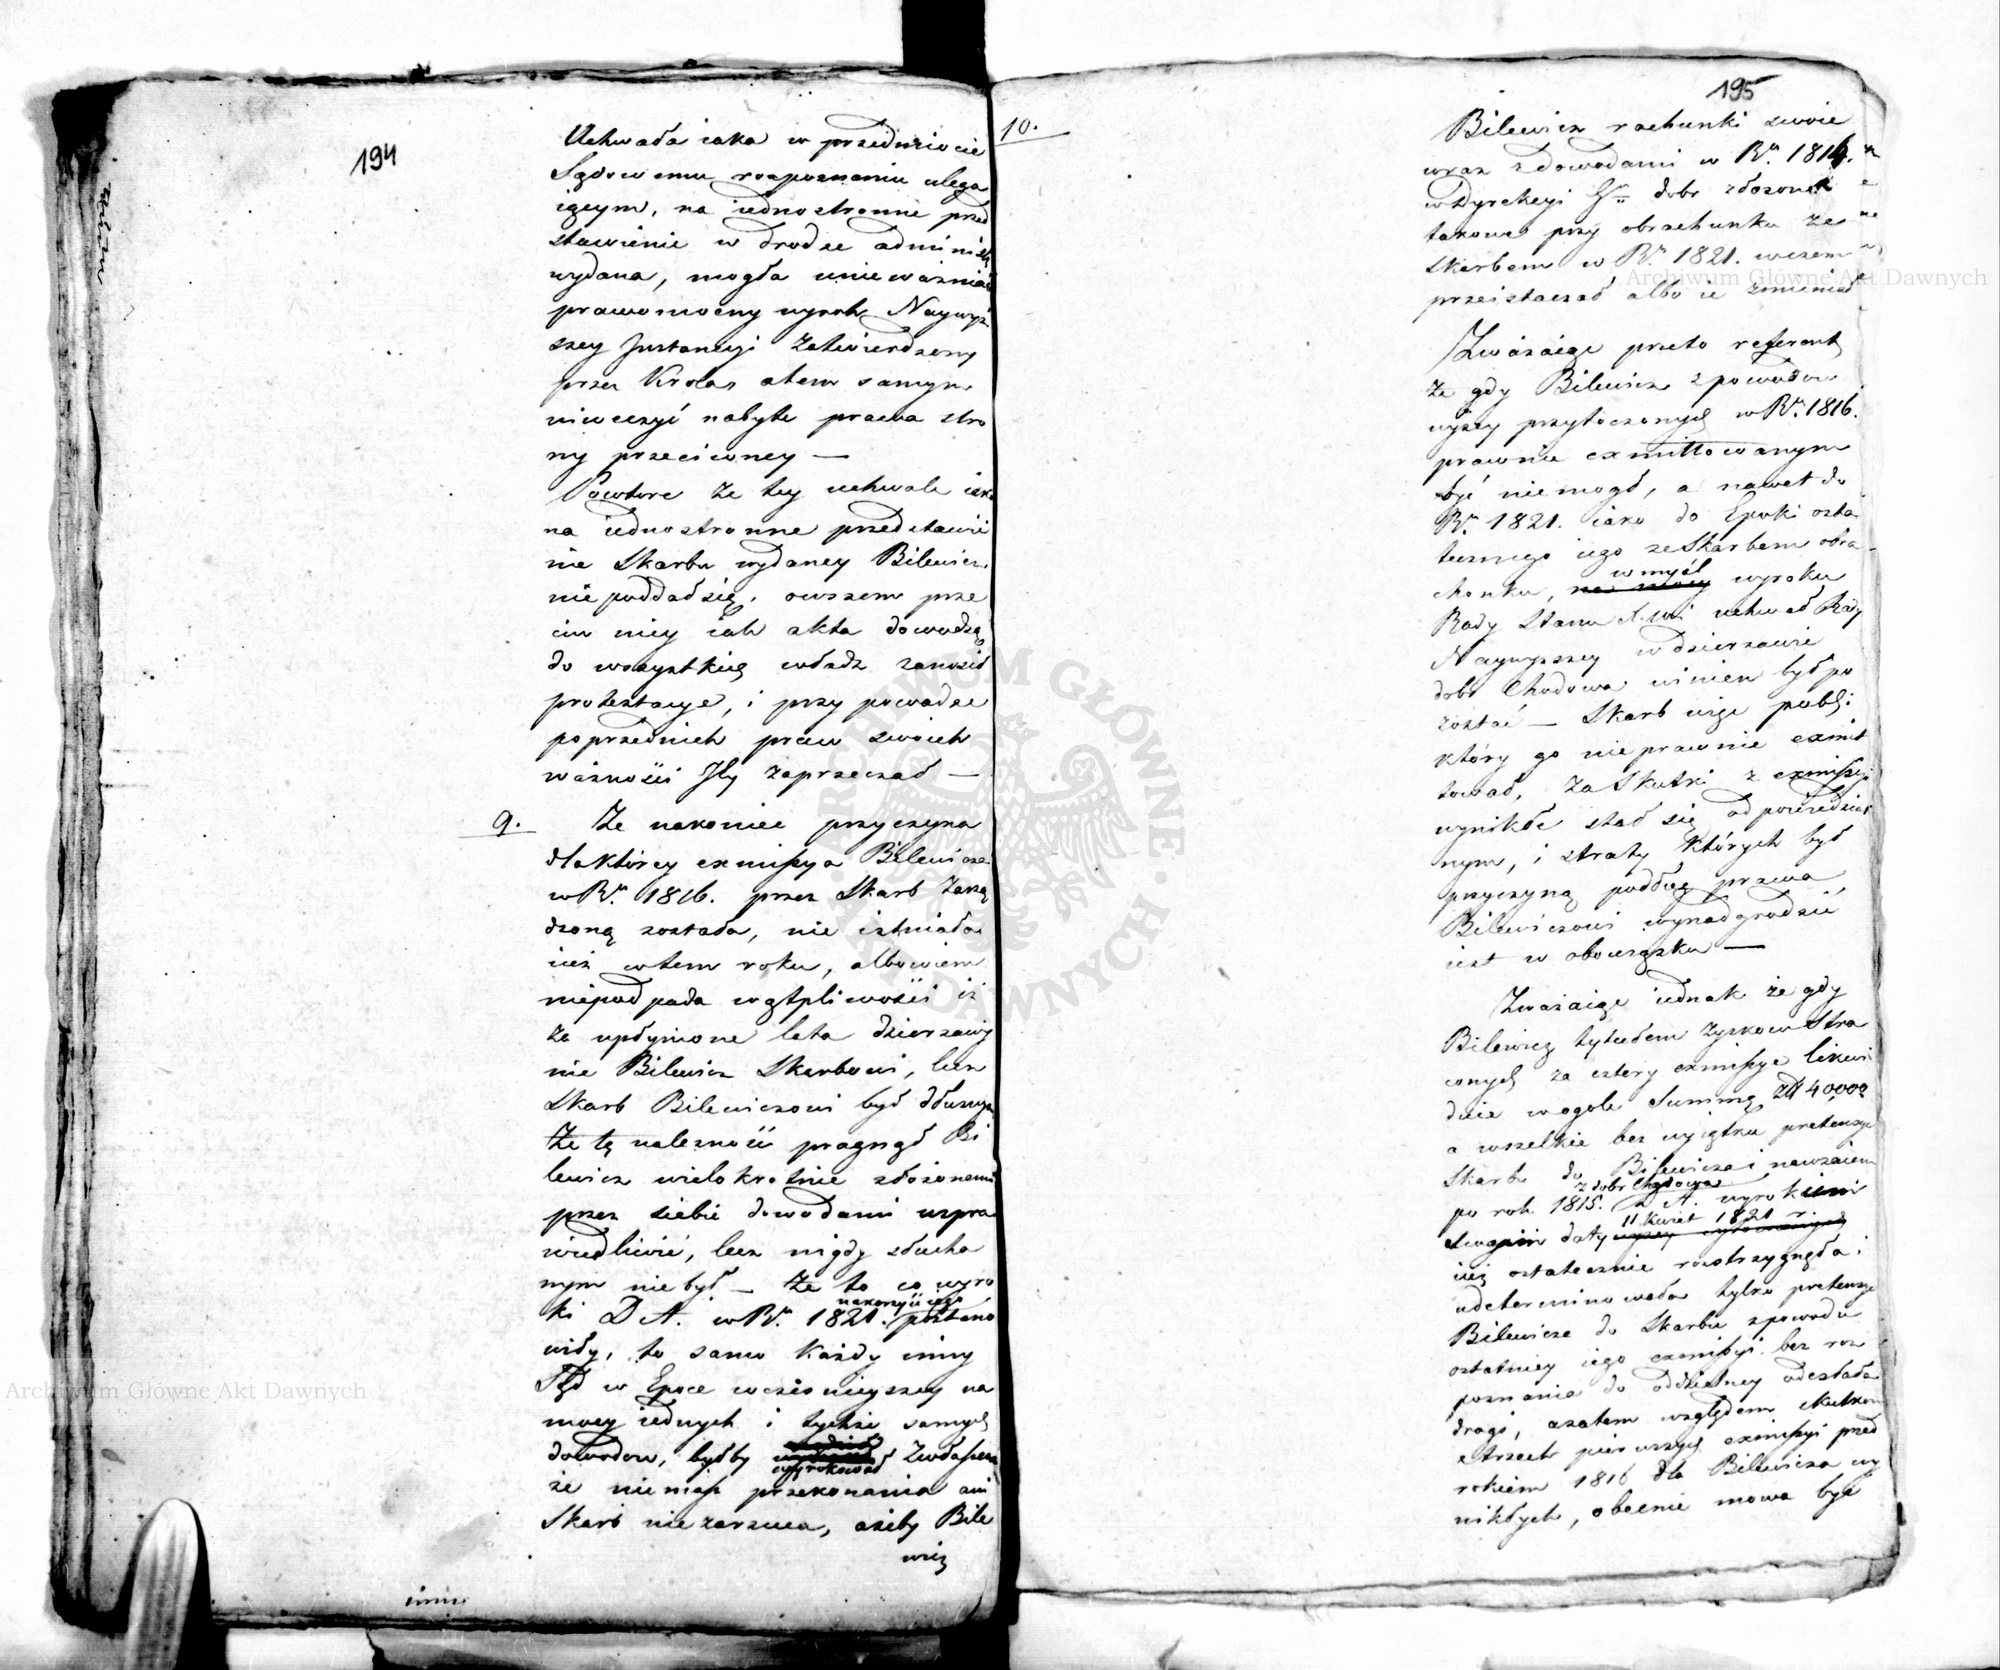 194
Uchwała iaka w przedmiocie
Sądowemu rozpoznaniu ulega
iącym, na iednostronne przed
stawienie w drodze administr
wydana, mogła unieważniać
prawomocny wyrok Naywyż
szey Jnstancyi Zatwierdzony
przez Krola, a tem samym
niweczyć nabyte prawa stro
ny przeciwney —
Powtore że tey uchwale iako
na iednostronne przedstawie
nie Skarbu wydaney Bilewicz
nie poddał się, owszem prze
ciw niey iak akta dowodzą
do wszystkich władz zanosił
protestacye, i przy powadze
poprzednich praw swoich
ważności Jey zaprzeczał —
9. Że nakoniec przyczyna
dla którey exmissya Bilewicza
w Rku 1816. przez Skarb Zarzą
dzoną została, nie istniała
iuż w tem roku, albowiem
niepodpada wątpliwości iż
za upłynione lata dzierzawy
nie Bilewicz Skarbowi, lecz
Skarb Bilewiczowi był dłużnym
Że tę należność pragnął Bi
lewicz wielokrotnie złożonemi
przez siebie dowodami uspra
wiedliwić, lecz nigdy słucha
nym nie był — Że to co wyro
ki D A. w Rku 1821. na korzyść iego postano
wiły, to samo każdy inny
Sąd w Epoce wcześnieyszey na
mocy iednych i tychże samych
dowodow, byłby wyrokował Zwłaszcza
że niemasz przekonania ani
Skarb nie zarzuca, ażeby Bile
wicz
10.
195
Bilewicz rachunki swoie
wraz z dowodami w Rku 1814.
w Dyrekcyi Gr. dobr złożone
takowe przy obrachunku ze
Skarbem w Rku 1821. wczem
przeistaczał albo ie zmieniał
Zważaiąc przeto referent
że gdy Bilewicz z powodow
wyżey przytoczonych w Rku 1816.
prawnie exmittowanym
być niemogł, a nawet do
Rku 1821. iako do Epoki osta
tecznego iego ze Skarbem obra
chunku, na mocy w myśl wyroku
Rady Stanu i uchwał Rady
Naywyższey w dzierzawie
dobr Chodowa winien był po
zostać — Skarb więc publ:
który go nieprawnie exmit
tował, za Skutki z exmissyi
wynikłe stał się odpowiedzial
nym, i straty których był
przyczyną podług prawa
Bilewiczowi wynadgrodzić
iest w obowiązku —
Zważaiąc iednak że gdy
Bilewicz tytułem zyskow stra
conych za cztery exmissye likwi
duie w ogole Summę Zł 40000
a wszelkie bez wyiątku pretensye
Skarbu do Bilewicza i nawzaiem
po rok 1815. z dobr Chodowa D. A. wyrokiem
swoim daty 11 Kwiet 1821 r.
iuż ostatecznie rozstrzygnęła i
udeterminowała tylko pretensye
Bilewicza do Skarbu z powodu
ostatniey iego exmissyi bez roz
poznania do oddzielney odesłała
drogi, a zatem względem skutkow
z trzech pierwszych exmissyi przed
rokiem 1816 dla Bilewicza wy
nikłych, obecnie mowa być
Archiwum Główne Akt Dawnych
Archiwum Główne Akt Dawnych
ARCHIWUM GŁÓWNE · AKT DAWNYCH ·